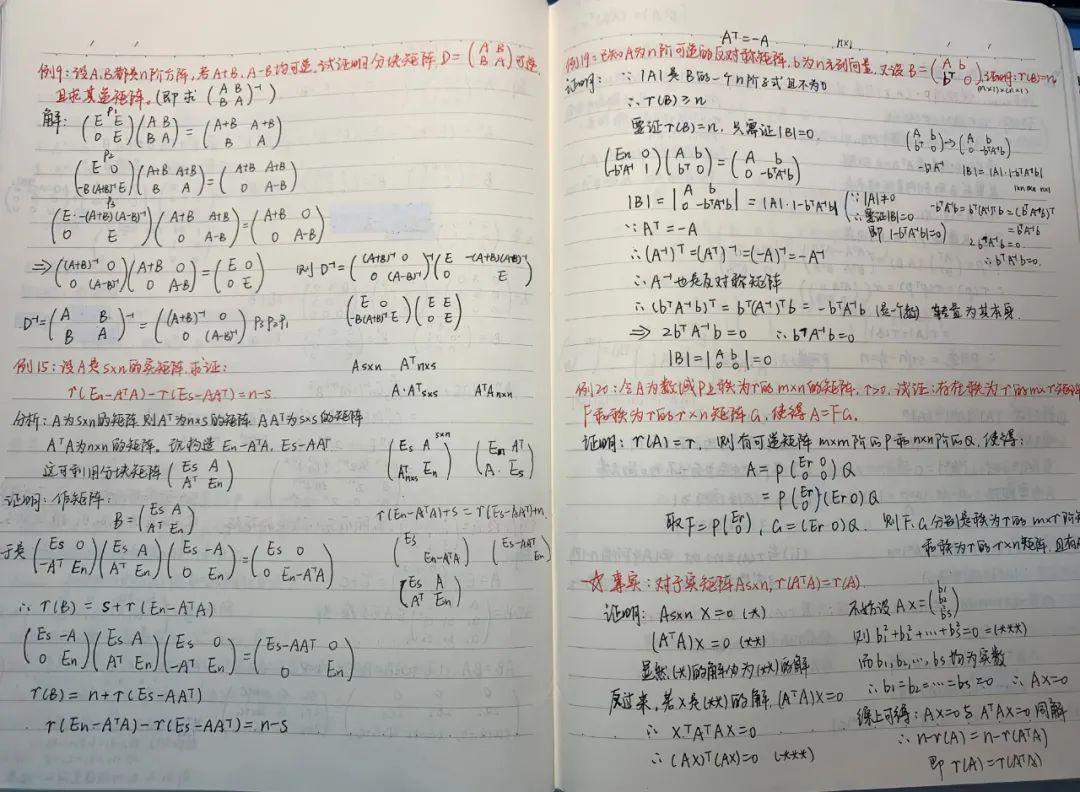 例9：设A、B都是n阶方阵，若A+B、A-B均可逆，试证明分块矩阵D=(A B; B A)可逆，
且求其逆矩阵。(即求(A B; B A)⁻¹)
解：P₁
(E E; 0 E)(A B; B A)=(A+B A+B; B A)
P₂
(E 0; -B(A+B)⁻¹ E)(A+B A+B; B A)=(A+B A+B; 0 A-B)
P₃
(E -(A+B)(A-B)⁻¹; 0 E)(A+B A+B; 0 A-B)=(A+B 0; 0 A-B)
⇒((A+B)⁻¹ 0; 0 (A-B)⁻¹)(A+B 0; 0 A-B)=(E 0; 0 E)
则D⁻¹=((A+B)⁻¹ 0; 0 (A-B)⁻¹)(E -(A+B)(A-B)⁻¹; E)
(E 0; -B(A+B)⁻¹ E)(E E; 0 E)
D⁻¹=(A B; B A)⁻¹=((A+B)⁻¹ 0; 0 (A-B)⁻¹)P₃P₂P₁
例15：设A是s×n的实矩阵，求证：
r(En-AᵀA)-r(Es-AAᵀ)=n-s
As×n Aᵀn×s
A·Aᵀs×s AᵀA n×n
分析：A为s×n的矩阵 则Aᵀ为n×s的矩阵 AAᵀ为s×s的矩阵
AᵀA为n×n的矩阵。 En-AᵀA，Es-AAᵀ
这可利用分块矩阵(Es A; Aᵀ En)
(Es A s×n; Aᵀn×s En) (En Aᵀ; A Es)
证明：作矩阵：
B=(Es A; Aᵀ En)
r(En-AᵀA)+s=r(Es-AAᵀ)+n
于是(Es 0; -Aᵀ En)(Es A; Aᵀ En)(Es -A; 0 En)=(Es 0; 0 En-AᵀA)
(Es; En-AᵀA) (Es-AAᵀ; En)
(Es A; Aᵀ En)
∴ r(B)=s+r(En-AᵀA)
(Es -A; 0 En)(Es A; Aᵀ En)(Es 0; -Aᵀ En)=(Es-AAᵀ 0; 0 En)
r(B)=n+r(Es-AAᵀ)
r(En-AᵀA)-r(Es-AAᵀ)=n-s
Aᵀ=-A n×1
例19：已知A为n阶可逆的反对称矩阵，b为n元列向量，又设B=(A b; bᵀ 0)，证明：r(B)=n。
(n×1)×(n×1)
证明：∵ |A|是B的一个n阶子式且不为0
∴ r(B)≥n
要证r(B)=n，只需证|B|=0。
(A b; bᵀ 0)→(A b; 0 -bᵀA⁻¹b)
-bᵀA⁻¹ |B|=|A|·|-bᵀA⁻¹b|
1×n n×n n×1
(En 0; -bᵀA⁻¹ 1)(A b; bᵀ 0)=(A b; 0 -bᵀA⁻¹b)
|B|=|A b; 0 -bᵀA⁻¹b|=|A|·|-bᵀA⁻¹b|
(∵ |A|≠0
∴ 要证|B|=0
即|-bᵀA⁻¹b|=0)
-bᵀA⁻¹b=bᵀ(A⁻¹)ᵀb=(bᵀA⁻¹b)ᵀ
=bᵀA⁻¹b
2bᵀA⁻¹b=0
∴ bᵀA⁻¹b=0.
∵ Aᵀ=-A
∴ (A⁻¹)ᵀ=(Aᵀ)⁻¹=(-A)⁻¹=-A⁻¹
∴ A⁻¹也是反对称矩阵
∴ (bᵀA⁻¹b)ᵀ=bᵀ(A⁻¹)ᵀb=-bᵀA⁻¹b (是一个数) 转置为其本身.
⇒ 2bᵀA⁻¹b=0 ∴ bᵀA⁻¹b=0
|B|=|A b; 0 0|=0
例20：令A为数域P上秩为r的m×n的矩阵，r>0，试证：存在秩为r的m×r矩阵
F和秩为r的r×n矩阵G，使得A=FG.
证明：r(A)=r，则有可逆矩阵m×m阶的P和n×n阶的Q，使得：
A=P(Er 0; 0 0)Q
=P(Er; 0)(Er 0)Q
取F=P(Er; 0)，G=(Er 0)Q. 则F、G分别是秩为r的m×r阶
和秩为r的r×n矩阵，且有
☆事实：对于实矩阵As×n，r(AᵀA)=r(A).
证明：As×n X=0 (*)
(AᵀA)X=0 (**)
显然(*)的解必为(**)的解
反过来，若X是(**)的解，(AᵀA)X=0
∴ XᵀAᵀAX=0
∴ (AX)ᵀ(AX)=0 (***)
不妨设AX=(b₁; b₂; ⋮; bs)
则b₁²+b₂²+…+bs²=0 =(***)
而b₁,b₂,…,bs均为实数
∴ b₁=b₂=…=bs=0 ∴ AX=0
综上可得：AX=0与AᵀAX=0同解
∴ n-r(A)=n-r(AᵀA)
即r(A)=r(AᵀA)